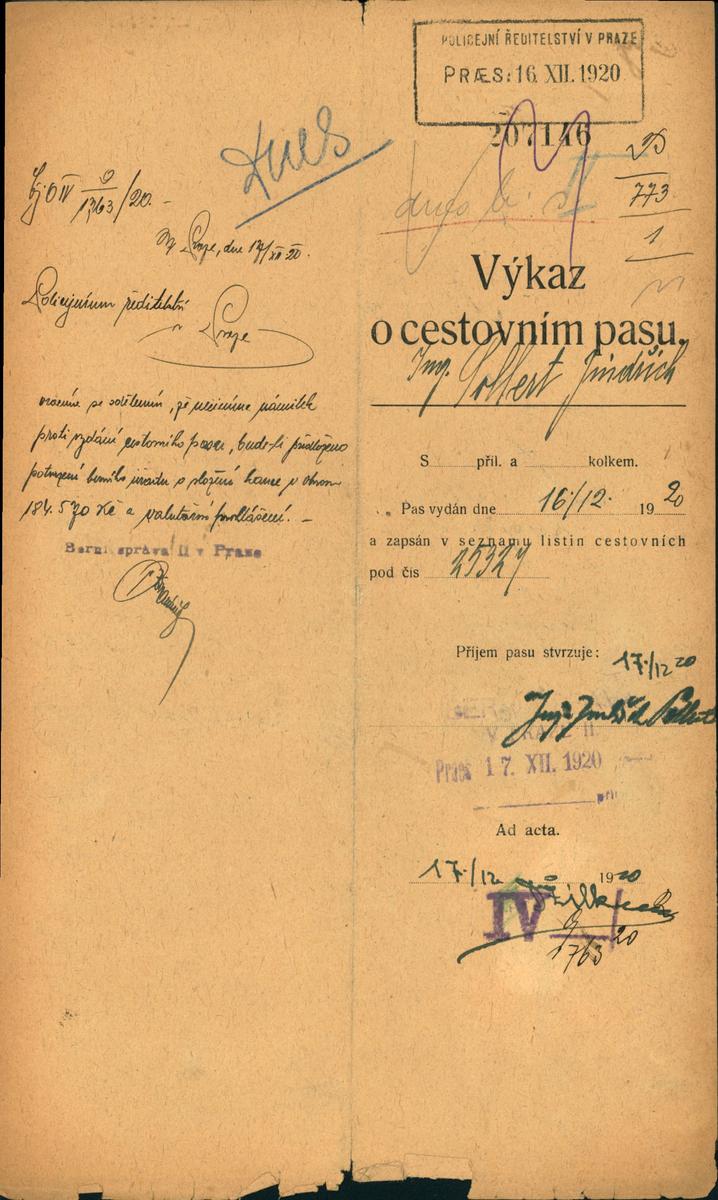 POLICEJNÍ ŘEDITELSTVÍ V PRAZE
PRÆS: 16. XII. 1920
207146
dnes
773
1
Čj. O IV 9/1763/20. –
V Praze, dne 17/XII 20.
Policejnímu ředitelství
v Praze
vráceno se sdělením, že nečiníme námitek
proti vydání cestovního pasu, bude-li předloženo
potvrzení berního úřadu o složení kauce v obnosu
184.570 Kč a valutární prohlášení. –
Berní správa II v Praze
Výkaz
o cestovním pasu.
Ing. Pollert Jindřich
S příl. a kolkem.
Pas vydán dne 16/12. 1920
a zapsán v seznamu listin cestovních
pod čís 25327
Příjem pasu stvrzuje:
17./12 20
Ing. Jindřich Pollert
Praes 17. XII. 1920
příl
Ad acta.
17./12. 1920
IV 9/1763 20